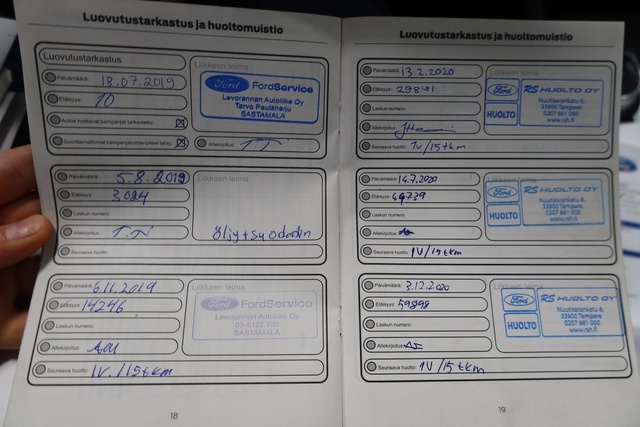 Luovutustarkastus ja huoltomuistio
Luovutustarkastus
Liikkeen leima
Päivämäärä: 18.07.2019
Etäisyys: 10
Autoa koskevat kampanjat tarkastettu
Suorittamattomat kampanjatoimenpiteet tehty
Ford FordService
Levorannan Autoliike Oy
Tarvo Pautaharju
SASTAMALA
Allekirjoitus: T.T
Päivämäärä: 5.8.2019
Etäisyys: 3024
Laskun numero:
Allekirjoitus:
Seuraava huolto:
Liikkeen leima
Öljyt+suodatin
Päivämäärä: 6.11.2019
Etäisyys: 14246
Laskun numero:
Allekirjoitus:
Seuraava huolto: 1V./15tkm
Liikkeen leima
Ford FordService
Levorannan Autoliike Oy
03-5122 720
SASTAMALA
18
Luovutustarkastus ja huoltomuistio
Päivämäärä: 13.2.2020
Etäisyys: 29841
Laskun numero:
Allekirjoitus:
Seuraava huolto: 1V/15tkm
Ford RS HUOLTO OY
HUOLTO
Nuutisarankatu 6,
33900 Tampere
0207 661 000
www.rsh.fi
Päivämäärä: 14.7.2020
Etäisyys: 44739
Laskun numero:
Allekirjoitus:
Seuraava huolto: 1V/15tkm
Ford RS HUOLTO OY
HUOLTO
Nuutisarankatu 6,
33900 Tampere
0207 661 000
www.rsh.fi
Päivämäärä: 3.12.2020
Etäisyys: 59898
Laskun numero:
Allekirjoitus:
Seuraava huolto: 1V/15tkm
Ford RS HUOLTO OY
HUOLTO
Nuutisarankatu 6,
33900 Tampere
0207 661 000
www.rsh.fi
19